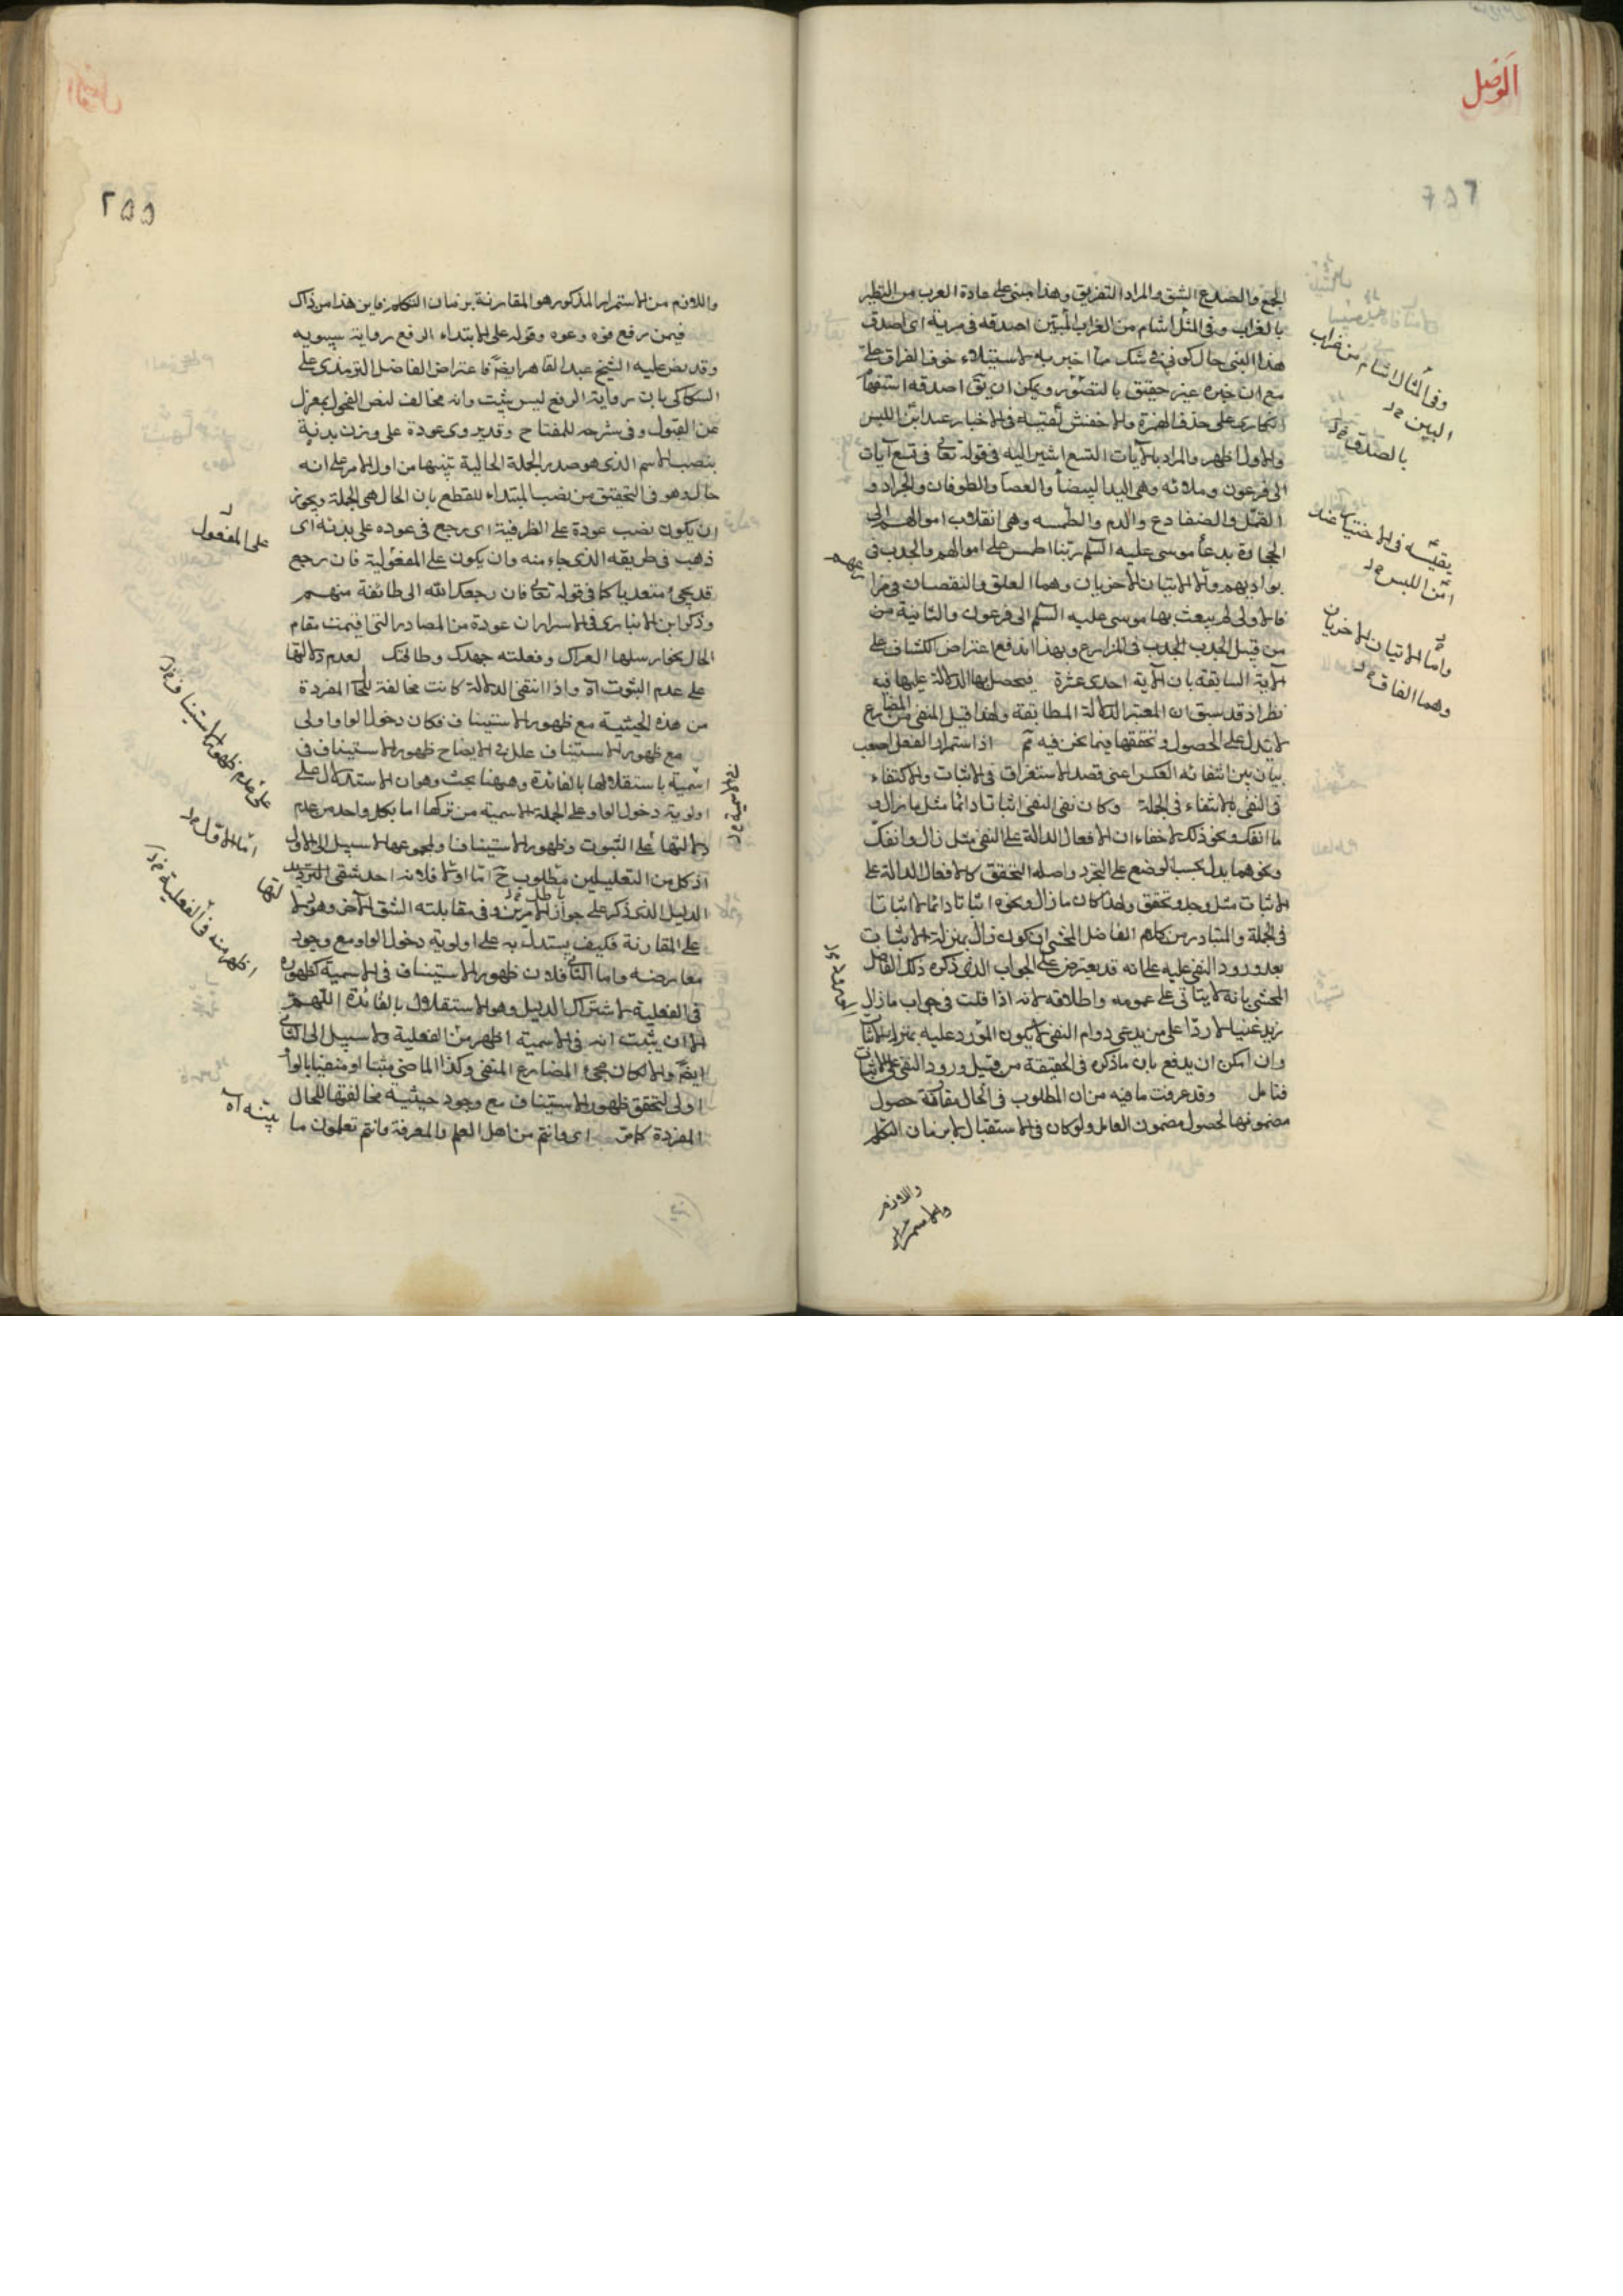 الوصل
٢٥٦
الجمع والصدع الشق والمراد التفريق وهذا مبنى على عادة العرب من التطير
بالغراب وفى المثل اشام من الغراب البين اصدقه فى مرية اى اصدق
هذا النبى حال كونى فى شك مما اخبر به لاستيلاء خوف الفراق على
مع ان خبره عنبر حقيق بالتصور ويمكن ان يق اصدقه استفهام
انكارى على حذف الهمزة والاخفش يقيسه فى الاخبار عند امن اللبس
والاول اظهر والمراد بالآيات التسع اشير اليه فى قوله تعالى فى تسع آيات
الى فرعون وملائه وهى اليد البيضأ والعصا والطوفان والجراد و
القمل والضفادع والدم والطمسه وهى انقلاب اموالهم الى
الحجارة بدعأ موسى عليه السلم ربنا اطمس على اموالهم والجدب فى
بواديهم والاتيان الاخريان وهما العلق والنقصان فى مزا
فالاولى لم يبعث بها موسى عليه السلم الى فرعون والثانية من
من قبيل الجدب الجدب فى المزارع وبهذا اندفع اعتراض الكشاف على
الآية السابقة بان الآية احدى عشرة فيحصل بها الدلالة عليها فيه
نظر اذ قد سبق ان المعتبر الدلالة المطابقة ولهذا قيل المنفى من المضارع
لا يدل على الحصول وتحققها فيما نحن فيه تم اذ استمرار الفعل اصعب
بيان بين انتفائه العكس اعنى قصد الاستغراق فى الاثبات والاكتفاء
فى النفى بالانتفاء فى الجملة وكان نفى النفى اثباتا دائما مثل ما زال و
ما انفك ونحو ذلك لاخفاء ان الافعال الدالة على النفى مثل زال وانفك
ونحوهما يدل بحسب الوضع على التجرد واصله التحقق كالافعال الدالة على
الاثبات مثل وجد وتحقق ولهذا كان ما زال ونحوه اثباتا دائما لا اثباتا
فى الجملة والمتبادر من كلام الفاضل المحشى ان كون زال بمنزلة الاثبات
بعد ورود النفى عليه على انه قد يعترض على الجواب الذى ذكره ذلك الفاضل
المحشى بانه لا يتاتى على عمومه واطلاقه لانه اذا قلت فى جواب ما زال
زيد غنيا لا ردّا على من يدعى دوام النفى لا يكون المورد عليه بمنزلة الاثبات
وان امكن ان يدفع بان ما ذكره فى الحقيقة من قبيل ورود النفى على الاثبات
فتامل وقد عرفت ما فيه من ان المطلوب فى الحال مقارنة حصول
مضمونها لحصول مضمون العامل ولو كان فى الاستقبال لا بزمان التكلم
واللازم
والاستمرار
وفى المثل لاشام من غراب
البين
بالصدق
يقيسه فى الاختيار عند
امن اللبس
وامّا الاتيان الاخريان
وهما الفاق
٢٥٥
واللازم من الاستمرار المذكور هو المقارنة بزمان التكلم فاين هذا من ذاك
فيمن رفع فوه وعوه وقوله على الابتداء الرفع رواية سيبويه
وقد نص عليه الشيخ عبد القاهر ايضا فاعتراض الفاضل الترمذى على
السكاكى بان رواية الرفع ليس بثبت وانه مخالف لنص الفحول بمعزل
عن القبول وفى شرحه للمفتاح وقد يروى عودة على وزن بدنة
بنصب الاسم الذى هو صدر الجملة الحالية تنبيها من اول الامر على انه
حال وهو فى التحقيق من نصب المبتداء للقطع بان الحال هى الجملة ويجوز
ان يكون نصب عودة على الظرفية اى رجع فى عوده على بدئه اى
ذهب فى طريقه الذى جاء منه وان يكون على المفعولية فان رجع
قد يجئ متعديا كما فى قوله تعالى فان رجعك الله الى طائفة منهم
وذكر ابن الانبارى فى الاسرار ان عودة من المصادر التى اقيمت مقام
الحال نحو ارسلها العراك وفعلته جهدك وطاقتك لعدم دلالتها
على عدم الثبوت اه واذا انتفى الدلالة كانت مخالفة للحال المفردة
من هذه الحيثية مع ظهور الاستيناف فكان دخول الواو اولى
مع ظهور الاستيناف علل فى الايضاح ظهور الاستيناف فى
اسمية باستقلالها بالفائدة وههنا بحث وهو ان الاستدلال على
اولوية دخول الواو على الجملة الاسمية من تركها اما بكل واحد من عدم
دلالتها على الثبوت وظهور الاستيناف او بمجموعها لا سبيل الى الاول
اذ كل من التعليلين مطلوب ح اما اولا فلانه احد شقى الترديد
الدليل الذى ذكر على جواز الامرين وفى مقابلته الشق الآخر وهو
على المقارنة فكيف يستدل به على اولوية دخول الواو مع وجود
معارضه واما الثانى فلان ظهور الاستيناف فى الاسمية كظهوره
فى الفعلية لاشتراك الدليل وهو الاستقلال بالفائدة اللهم
الا ان يثبت انه فى الاسمية اظهر من الفعلية ولا سبيل الى الثانى
ايضا والا لكان مجئ المضارع المنفى وكذا الماضى مثبتا او منفيا بالواو
اولى لتحقق ظهور الاستيناف مع وجود حيثية مخالفتها للحال
المفردة كامر اى وانتم من اهل العلم والمعرفة وانتم تعلمون ما
على المفعول
على عدم ظهور الاستيناف
امّا الاوّل
اظهر منه فى الفعلية
بينه اه